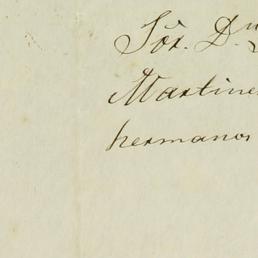 Sör. Dn
Martine
hermanos